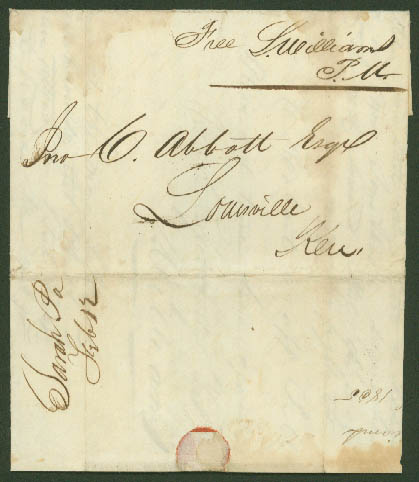 Free S. Williams
P. M.
Jno C. Abbott Esqr
Louisville
Ken.
Sarah Pa
Feb 12